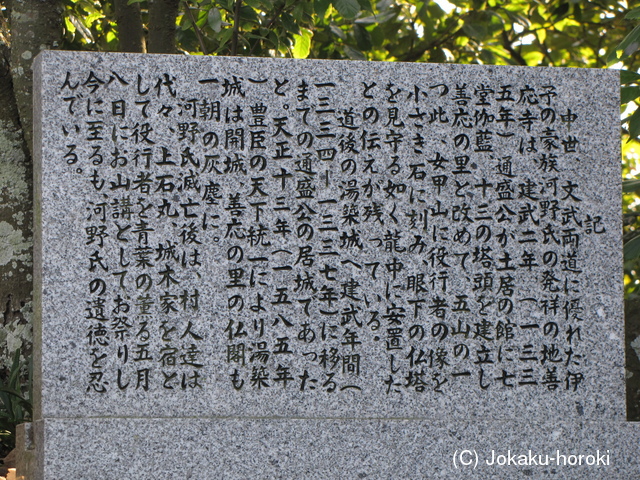 記
中世、文武両道に優れた伊
予の豪族河野氏の発祥の地善
応寺は、建武二年(一三三
五年)通盛公が土居の館に七
堂伽藍、十三の塔頭を建立し
善応の里と改めて五山の一
つ此、女甲山に役行者の像を
小さき石に刻み、眼下の仏塔
を見守る如く龍中に安置した
との伝えが残っている。
道後の湯築城へ建武年間(
一三三四ー一三三七年)に移る
までの通盛公の居城であった
と。天正十三年(一五八五年
)豊臣の天下統一により湯築
城は開城、善応の里の仏閣も
一朝の灰塵に。
河野氏滅亡後は、村人達は
代々、上石丸、城木家を宿と
して役行者を青葉の薫る五月
八日にお山講としてお祭りし
今に至るも河野氏の遺徳を忍
んでいる。
(C) Jokaku-horoki